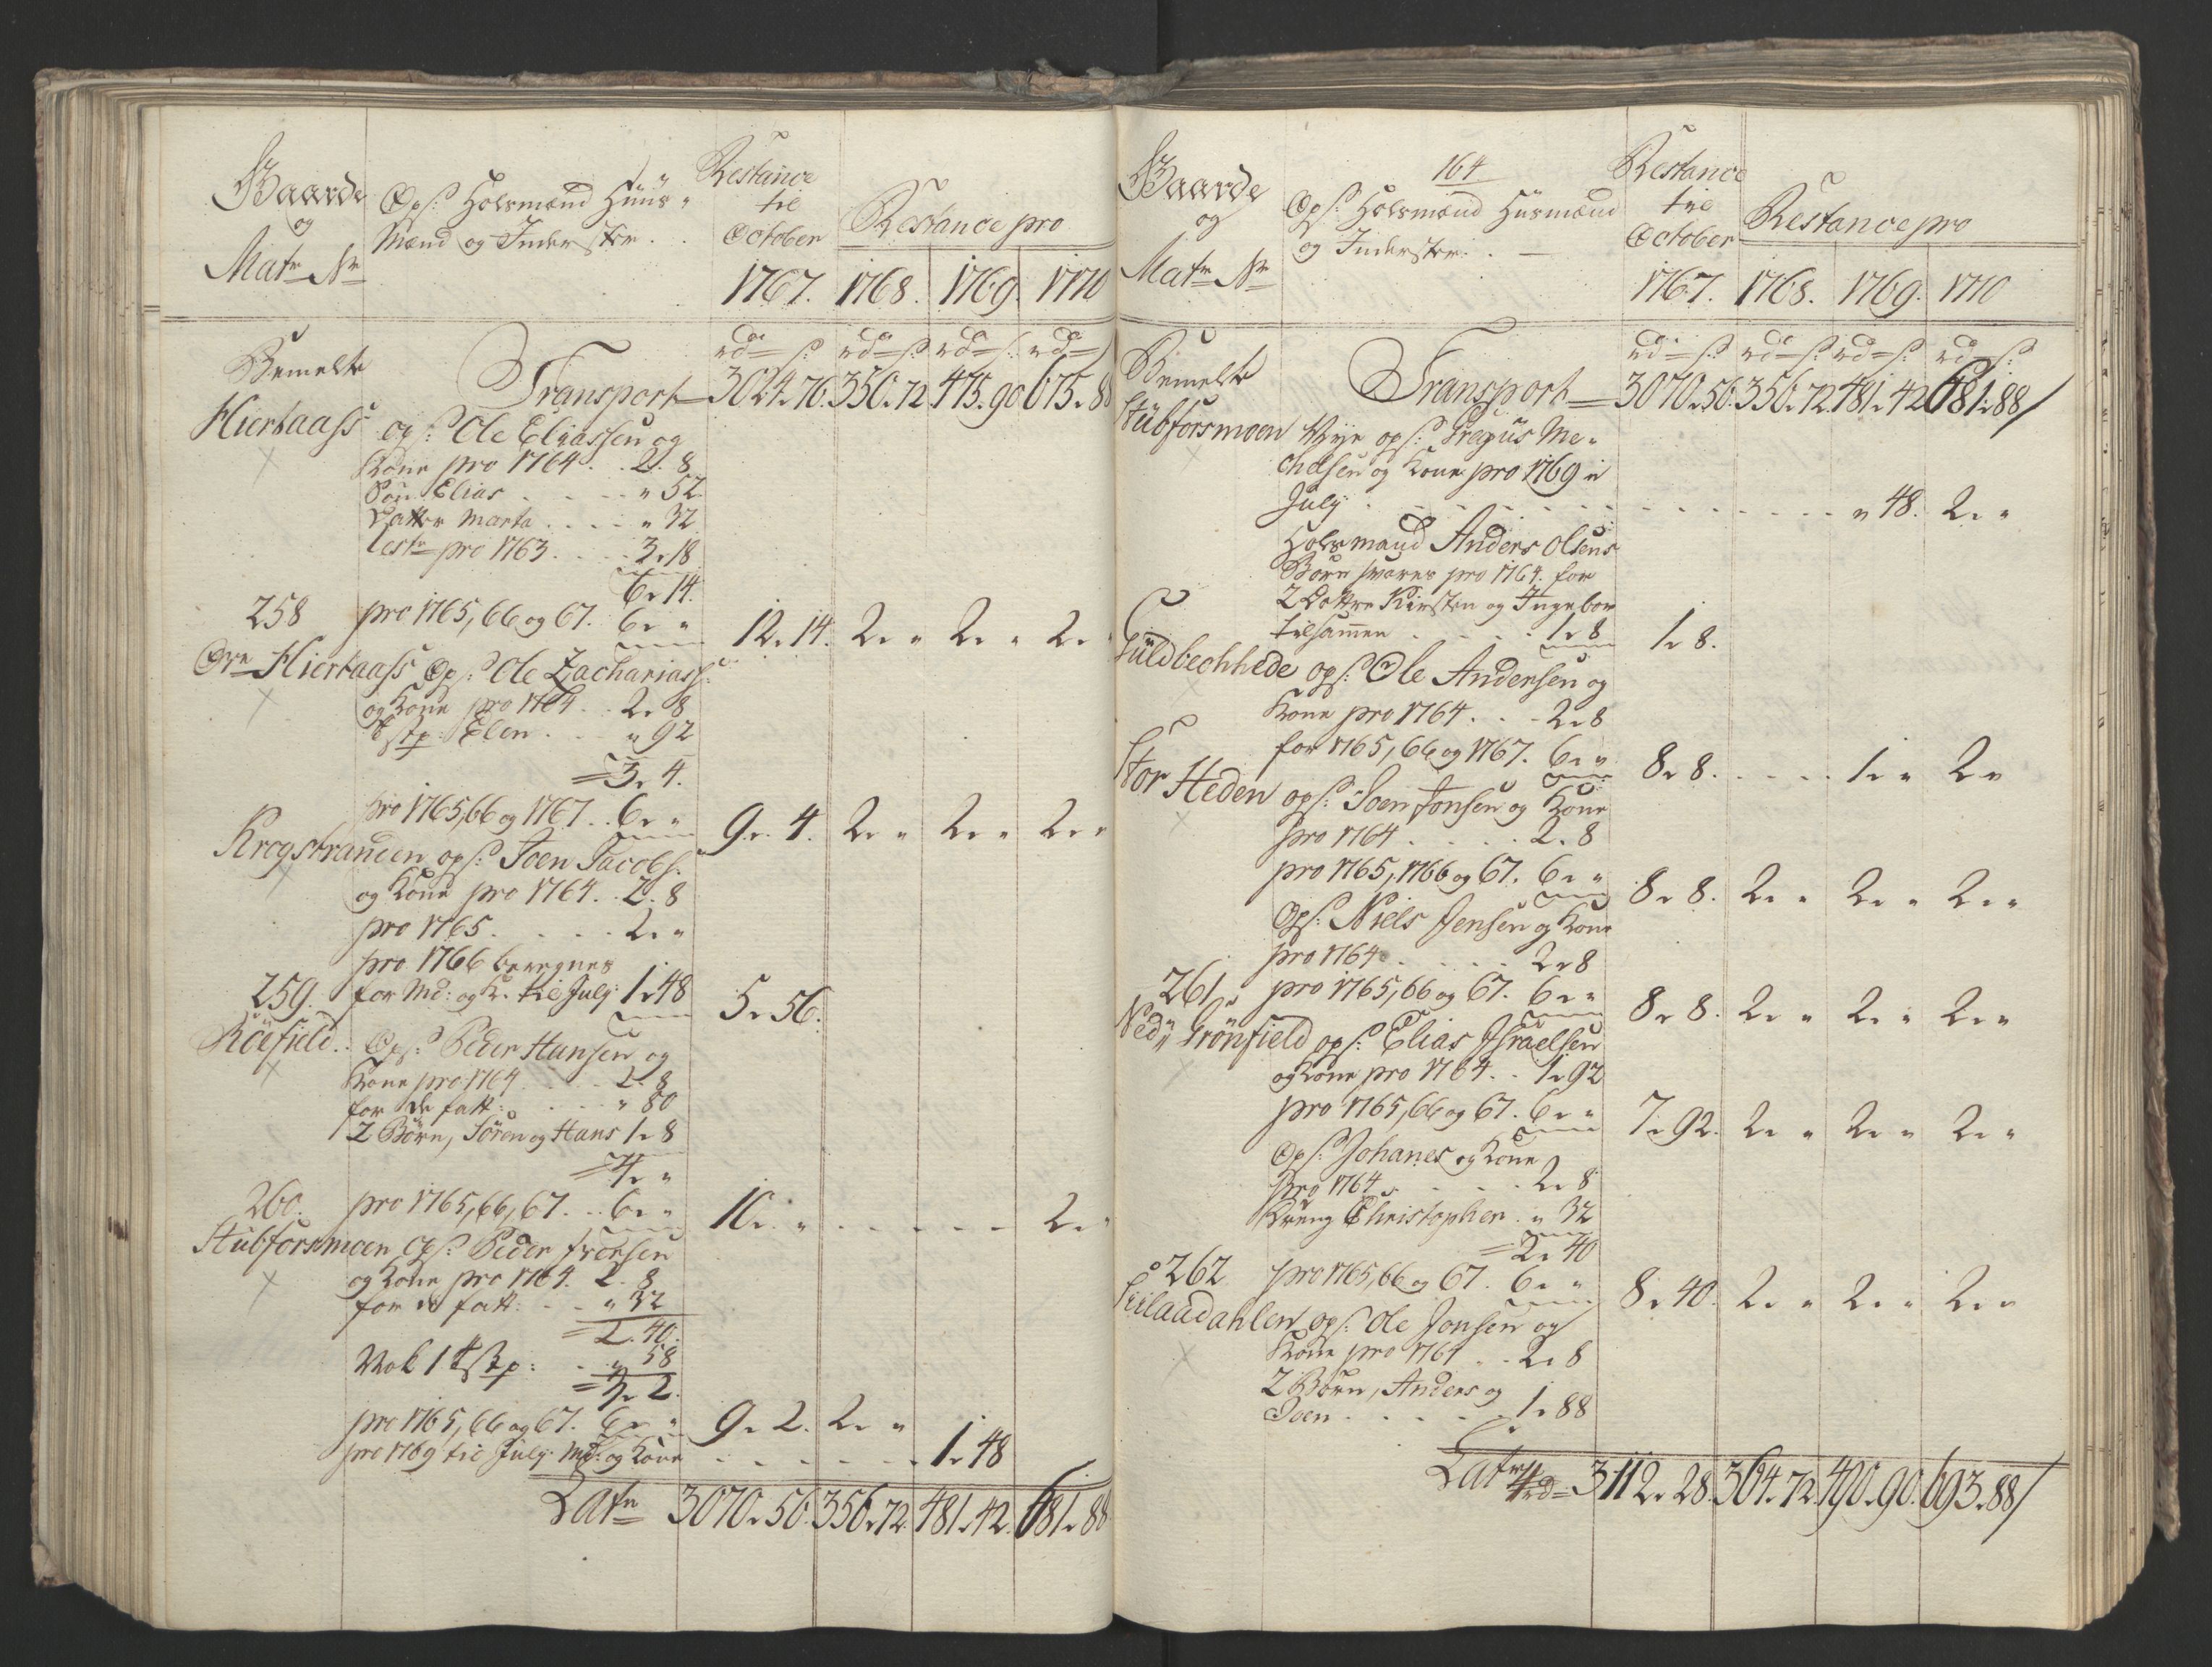 Gaarde
og
Matr Nr
Ops: Holsmænd Huus
Mænd og Inderster
Restance
til
October
1767.
Restance pro
1768. 1769. 1770
rd s: rd s: rd s: rd
Bemelte Transport 3024.76. 350.72 475.90 675.88
Hiertaass ops: Ole Eliassen og
Kone pro 1764 . . 2. 8
Søn Elias . . . . " 52.
Datter Marta . . . . " 32
Rest pro 1763 . . . . 3. 18
6. 14.
258 pro 1765, 66 og 67. 6. " 12. 14. 2. " 2. " 2. "
Øvre Hiertaass Ops: Ole Zachariass:
og Kone pro 1764 . . 2. 8
Elen . . . " 92
= 3. 4.
pro 1765, 66 og 1767 . . 6. " 9. 4. 2. " 2. " 2. "
Krogstranden ops: Joen Jacobs:
og Kone pro 1764 . . 2. 8
pro 1765 . . . . . 2. "
pro 1766 beregnes
259. for Md: og K. til July: 1. 48 5. 56.
Röefield. Ops: Peder Hansen og
Kone pro 1764 . . . . 2. 8
for de fatt: . . . . " 80
2 Børn, Sören og Hans 1. 8
= 4. "
260. pro 1765, 66, 67. . . 6. " 10. " . . . . . . 2. "
Stubforsmoen Ops: Peder
og Kone pro 1764. 2. 8
for de fatt: . . . " 32
= 2. 40.
. . . " 58
= 3. 2.
pro 1765, 66 og 67. 6. " 9. 2. 2. "
pro 1769 til July: Md: og Kone . . . . . . . 1. 48
Latr 3070. 56. 356. 72. 481. 42. 681. 88
164
Gaarde
og
Matr Nr
Ops: Holsmænd Husmænd
og Inderster. . —
Restance
til
October
1767.
Restance pro
1768. 1769. 1770
rd s: rd s: rd s: rd s:
Bemelte Transport 3070. 56. 356. 72. 481. 42 681. 88/
Stubforsmoen Nye ops: Me-
chelsen og Kone pro 1769 i
July . . . . . . . . . . " 48. 2. "
Holsmand Anders Olsens
Børn svares pro 1764. for
2 Døttre Kirsten og Ingebor
tilsammen . . . . . 1. 8 1. 8.
Guldbechhede ops: Ole Andersen og
Kone pro 1764 . . . 2. 8
for 1765, 66 og 1767. 6. " 8. 8. . . . . 1. " 2. "
Stor Heden ops: Joen Jonsen og Kone
pro 1764 . . . . . 2. 8
pro 1765, 1766 og 67. 6. " 8. 8. 2. " 2. " 2. "
Ops: Niels Jensen og Kone
pro 1764 . . . . . 2. 8
261 pro 1765, 66 og 67. 6. " 8. 8. 2. " 2. " 2. "
Ned Grönfield ops: Elias Israelsen
og Kone pro 1764 . . 1. 92
pro 1765, 66 og 67. 6. " 7. 92. 2. " 2. " 2. "
Ops: Johanes og Kone
pro 1764 . . . . . 2. 8
Dreng Christopher . " 32
= 2. 40
262 pro 1765, 66 og 67. 6. " 8. 40. 2. " 2. " 2. "
ops: Ole Jonsen og
Kone pro 1764 . . 2. 8
2 Børn, Anders og
Joen . . . . . . 1. 88
Latr 3112. 28. 364. 72. 490. 90. 693. 88/